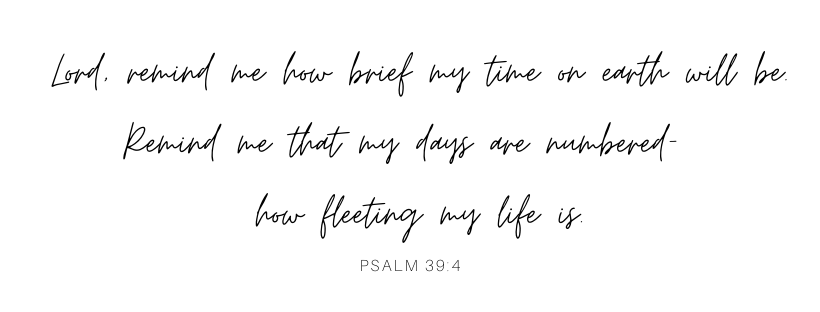 Lord, remind me how brief my time on earth will be.
Remind me that my days are numbered-
how fleeting my life is.
PSALM 39:4